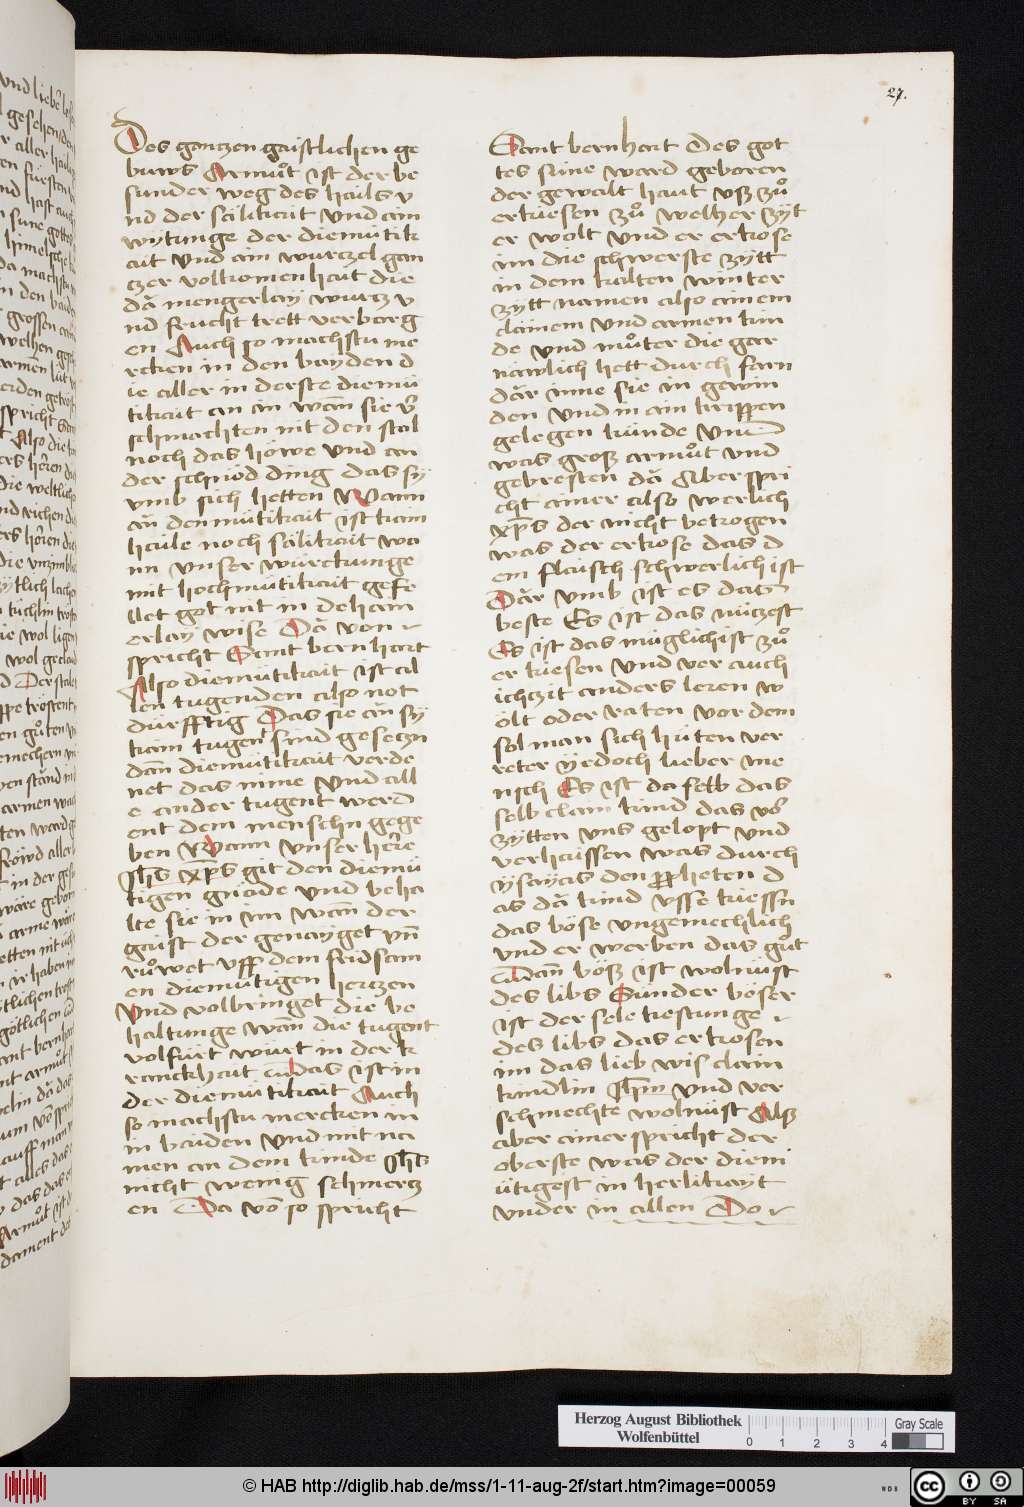 27.
Des gantzen gaistlichen ge
buws Armuͦt ist der be
sunder weg des hails v
nd der sälikait vnd ain
wytunge der diemütik
ait vnd ain wurczel gan
czer volkomenhait die
dā mengerlay wurtz v
nd frucht trett verborg
en Auch so machstu me
rcken in den bayden d
ie aller in derste diemü
tikait an in wañ sie v̄
schmachten nit den stal
noch das höwe vnd an
der schnöd ding das sy
vmb sich hetten Wann
ān demütikait ist kain
haile noch sälikait wa
nn vnser würckunge
mit hochmütikait gefe
llet got nit in dehain
erlay wise Dā von
spricht Sant bernhart
Also diemütikait ist al
len tugenden also not
dürfftig Das sie ān sy
kain tugent sind gesetzn
dañ diemütikait verde
net das nime vnd all
e ander tugent werd
ent dem menschn gege
ben Wann vnser herre
Jhs xp̄s git den diemü
tigen gnade vnd beha
lte sie in im wañ der
gaist der genayget vñ
ruͦwet vff dem fridsam
en diemütigen hertzen
Vnd volbringet die be
haltunge wañ die tugent
volfürt würt in der k
ranckhait Das ist in
der diemütikait Auch
so machstu mercken in
in baiden vnd mit na
men an dem kinde Jhs
nicht wenig schmertz
en Da vō so spricht
Sant bernhart Des got
tes süne ward geboren
der gewalt haut vsz zuͦ
erkiesen zuͦ welher zyt
er wolt vnd er erkose
im die schwerste zytt
in dem kalten winter
zytt namen also ainem
clainem vnd armen kin
de vnd muͦter die gar
nawlich hett durch farn
dār inne sie in gewin
den vnd in ain krippen
gelegen künde Vnd
was grosz armuͦt vnd
gebresten dā Aber spri
cht ainer also werlich
xp̄s der nicht betrogen
was der erkose das d
em flaisch schwerlich ist
Dār vmb ist es das
beste Es ist das nützest
Es ist das müglichist zuͦ
erkiesen vnd ver auch
ichzit anders leren w
ölt oder raten vor dem
sol man sich hüten ver
reter yedoch lieber me
nsch Es ist da selb das
selb clain kind das vor
zytten vns gelopt vnd
verhaissen was durch
ysayas den propheten d
as dā kind vsse kiessn
das böse vngemechlich
vnd er werben das guͦt
Wann bösz ist wolnüst
des libs Sünder böser
ist der sele kestunge
des libs das erkosen
im das lieb wis clain
kindlin Jhm vnd ver
schmechte wolnüst Als
aber ainer spricht der
oberste was der diem
ütigest in herlikayt
vnder in allen Do
Herzog August Bibliothek
Wolfenbüttel
0 1 2 3 4
Gray Scale
© HAB http://diglib.hab.de/mss/1-11-aug-2f/start.htm?image=00059
WDB
CC BY SA